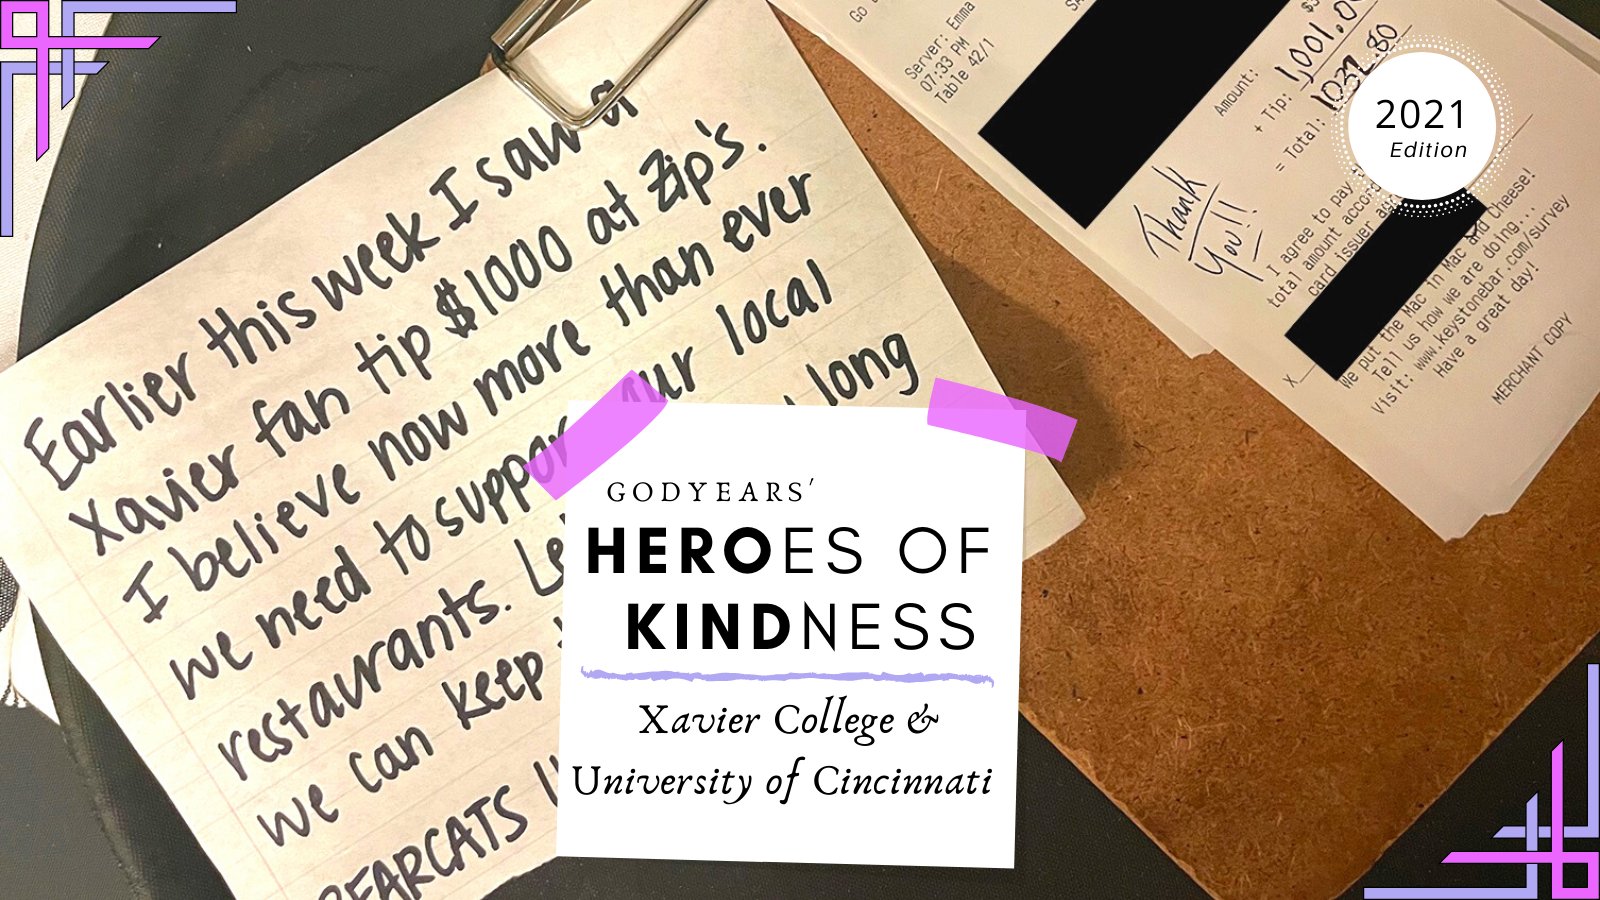 Earlier this week I saw a
Xavier fan tip $1000 at Zip's.
I believe now more than ever
we need to support our local
restaurants. long
we can keep
BEARCATS
Go
Server: Emma
07:33 PM
Table 42/1
Amount:
+ Tip: 1,001.0
= Total: 1032.80
Thank
You!!
I agree to pay
total amount
card issuer
X
We put the Mac in Mac and Cheese!
Tell us how we are doing...
Visit: www.keystonebar.com/survey
Have a great day!
MERCHANT COPY
2021
Edition
GODYEARS'
HEROES OF
KINDNESS
Xavier College &
University of Cincinnati